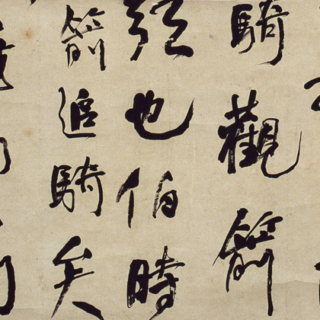 騎觀箭
弦也伯時
箭追騎矣